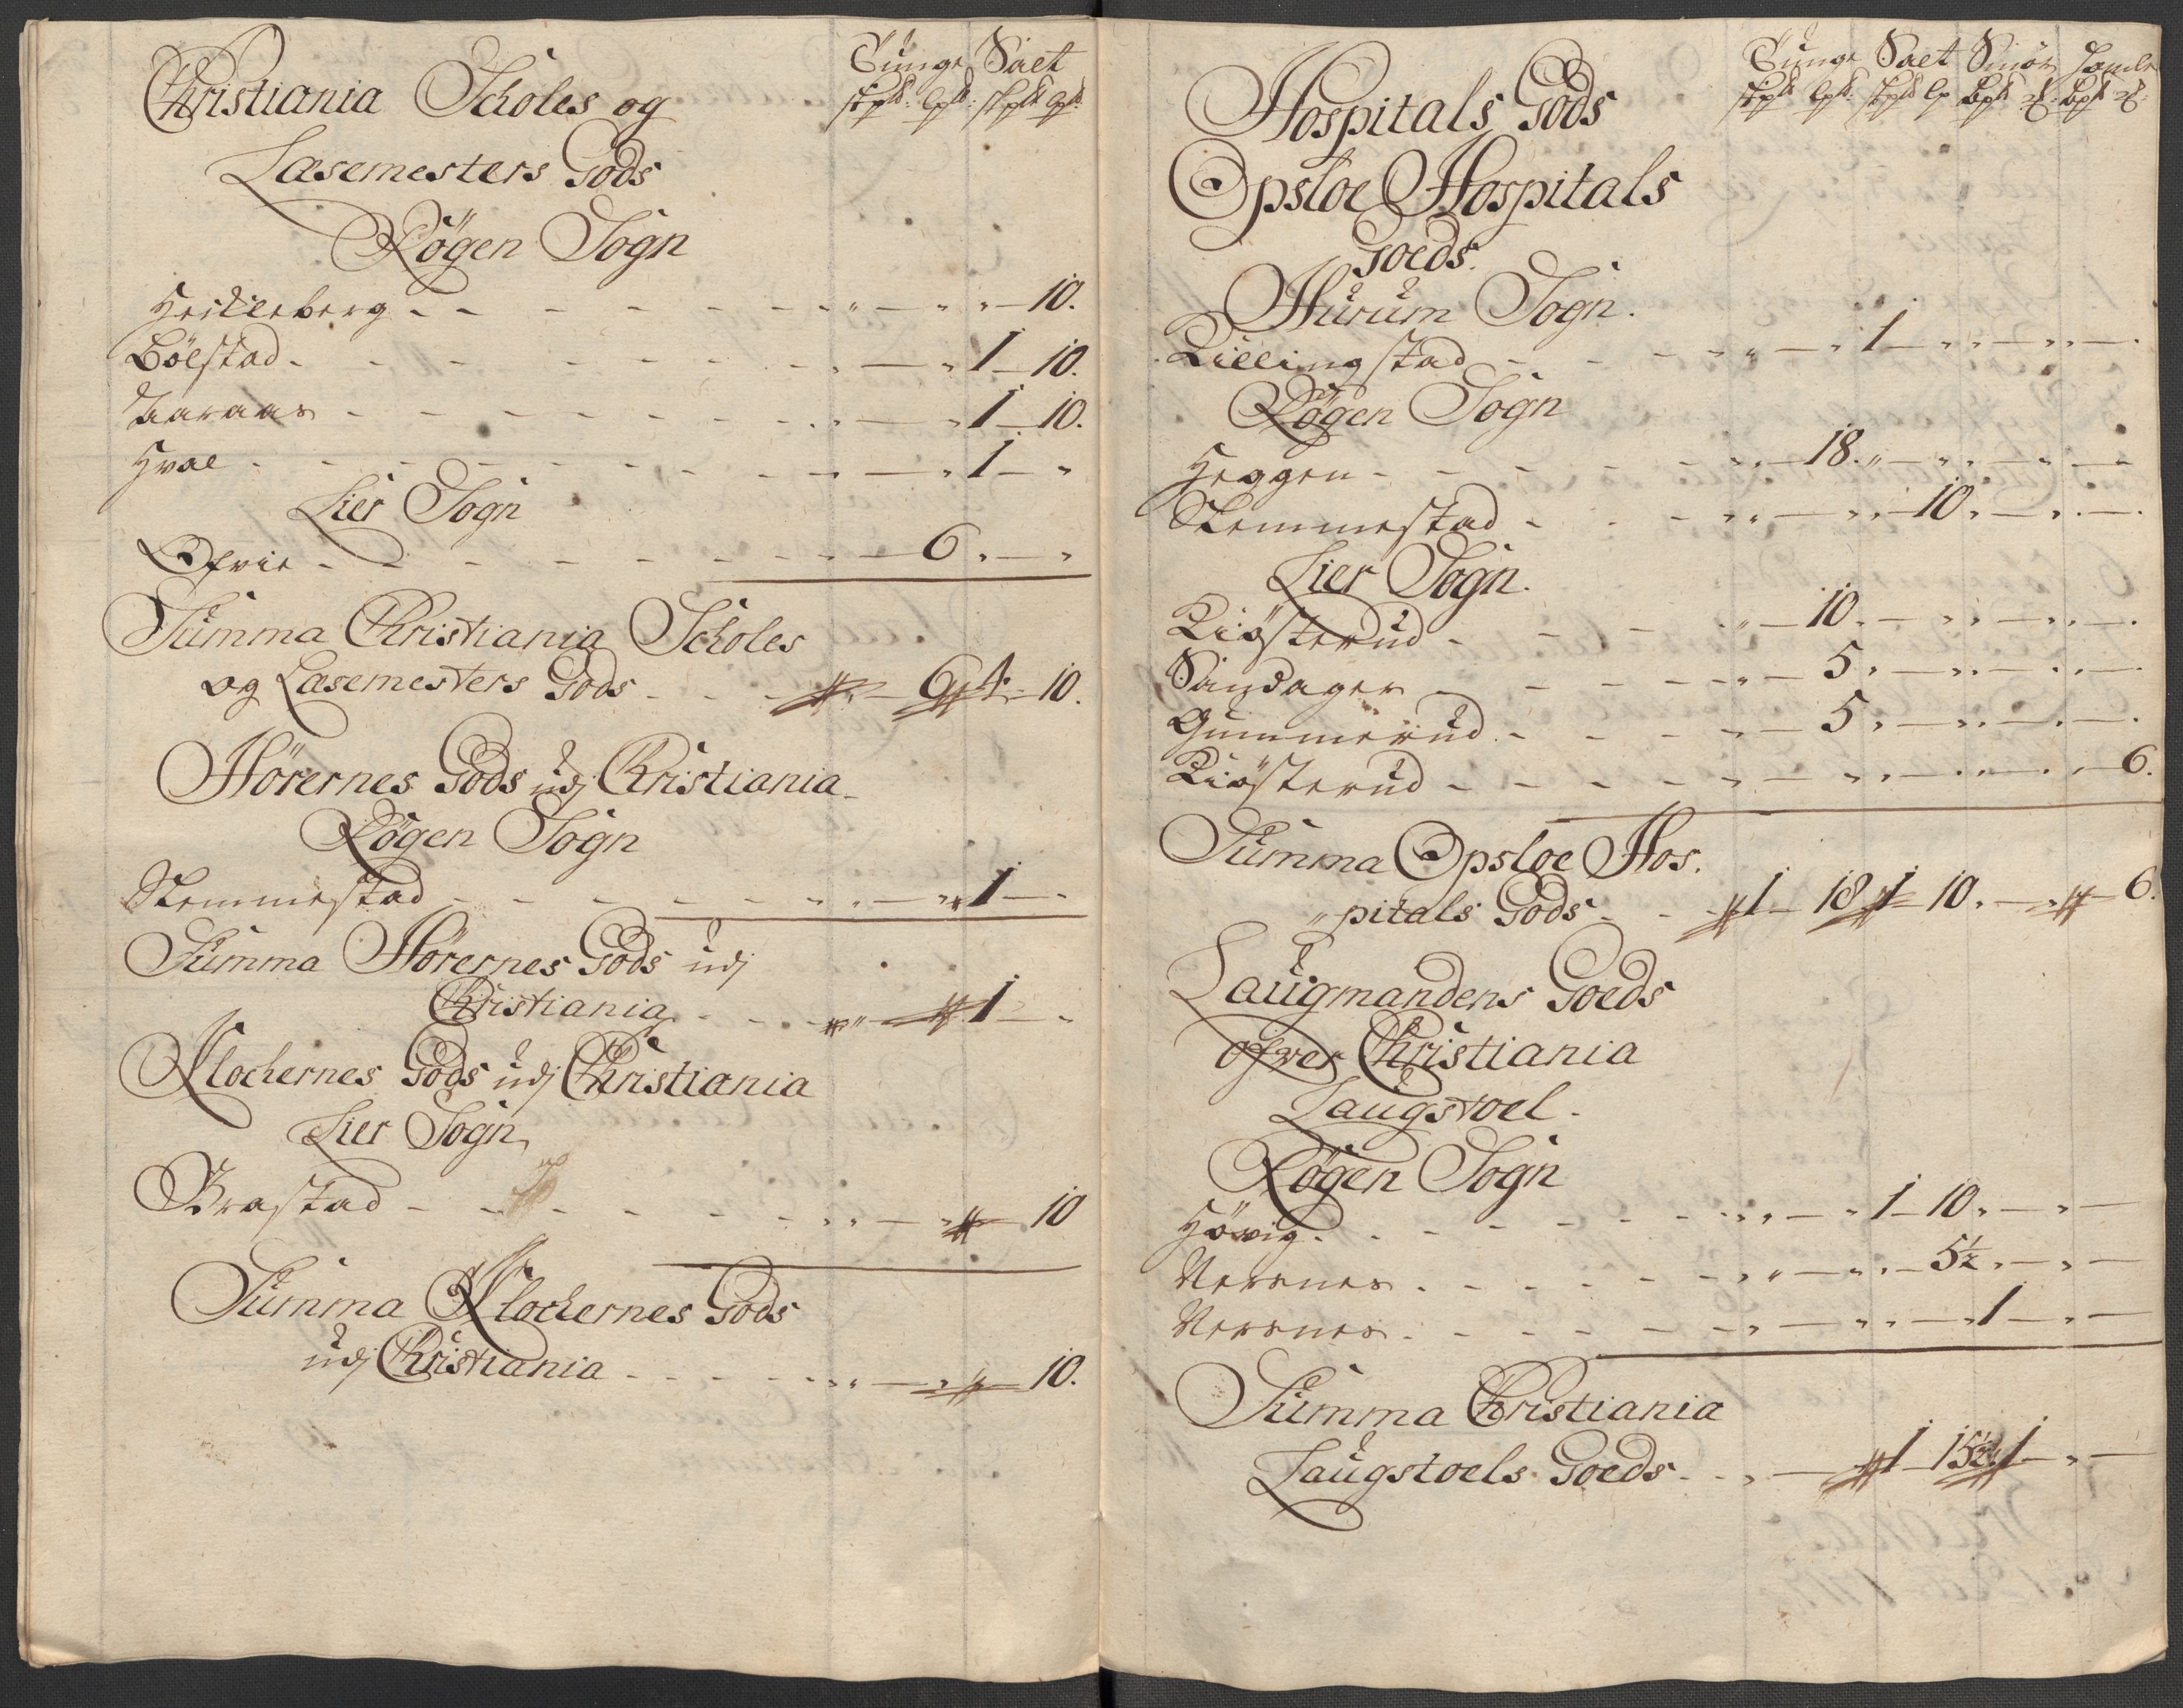 Tunge Salt
skp℔: lp℔: skp℔ lp℔:
Christiania Scholes og
Læsemesters Gods
Røgen Sogn
Heckleberg - - - - - - - " - " " 10.
Bölstad - - - - - - - " - " 1 - 10.
Aaraas - - - - - - - " - " 1 - 10.
Hval - - - - - - - - - " 1 - "
Lier Sogn
Ofvie - - - - - - - - 6 " - "
Summa Christiania Scholes
og Læsemesters Gods - - - " - 6 " 4 - 10.
Hörernes Gods udj Christiania
Røgen Sogn
Slemmestad - - - - - - - " - " 1 - -
Summa Hörernes Gods udj
Christiania - - - " " - " 1 - -
Klochernes Gods udj Christiania
Lier Sogn
Brastad - - - - - - - " " - " " - 10
Summa Klochernes Gods
udj Christiania - - - - - " " - " " - 10.
Tunge Salt Smör
skp℔ lp℔: skp℔ lp Bp℔ ℔: Bp℔ ℔:
Hospitals Gods
Opsloe Hospitals
Goeds.
Hurum Sogn.
Killingstad - - - - - " " - " 1 - " " - " " - .
Røgen Sogn
Heggen - - - - - - " " - 18. " - " " - " -
Slemmestad - - - - " " - " " 10 " - " . - .
Lier Sogn.
Kiösterud - - - - " - 10. - " " - " . - .
Sandager - - - - - " - 5 " - " . - . . -
Gummerud - - - - " - 5 " - " . - . - .
Kiösterud - - - - - " - " " - " . - . " - 6.
Summa Opsloe Hos.
" pitals Gods - - - " 1 - 18 " 1 - 10 " - " " - 6.
Laugmandens Goeds
ofver Christiania
Laugstoel.
Røgen Sogn
Hövig - - - - - - - " " - " 1 - 10 " - " -
Nersnes - - - - - - " " - " " - 5½ " - " -
Nersnes - - - - - - " " - " " - " 1 - " -
Summa Christiania
Laugstoels Goeds - - " - " 1 - 15½ " 1 - " -